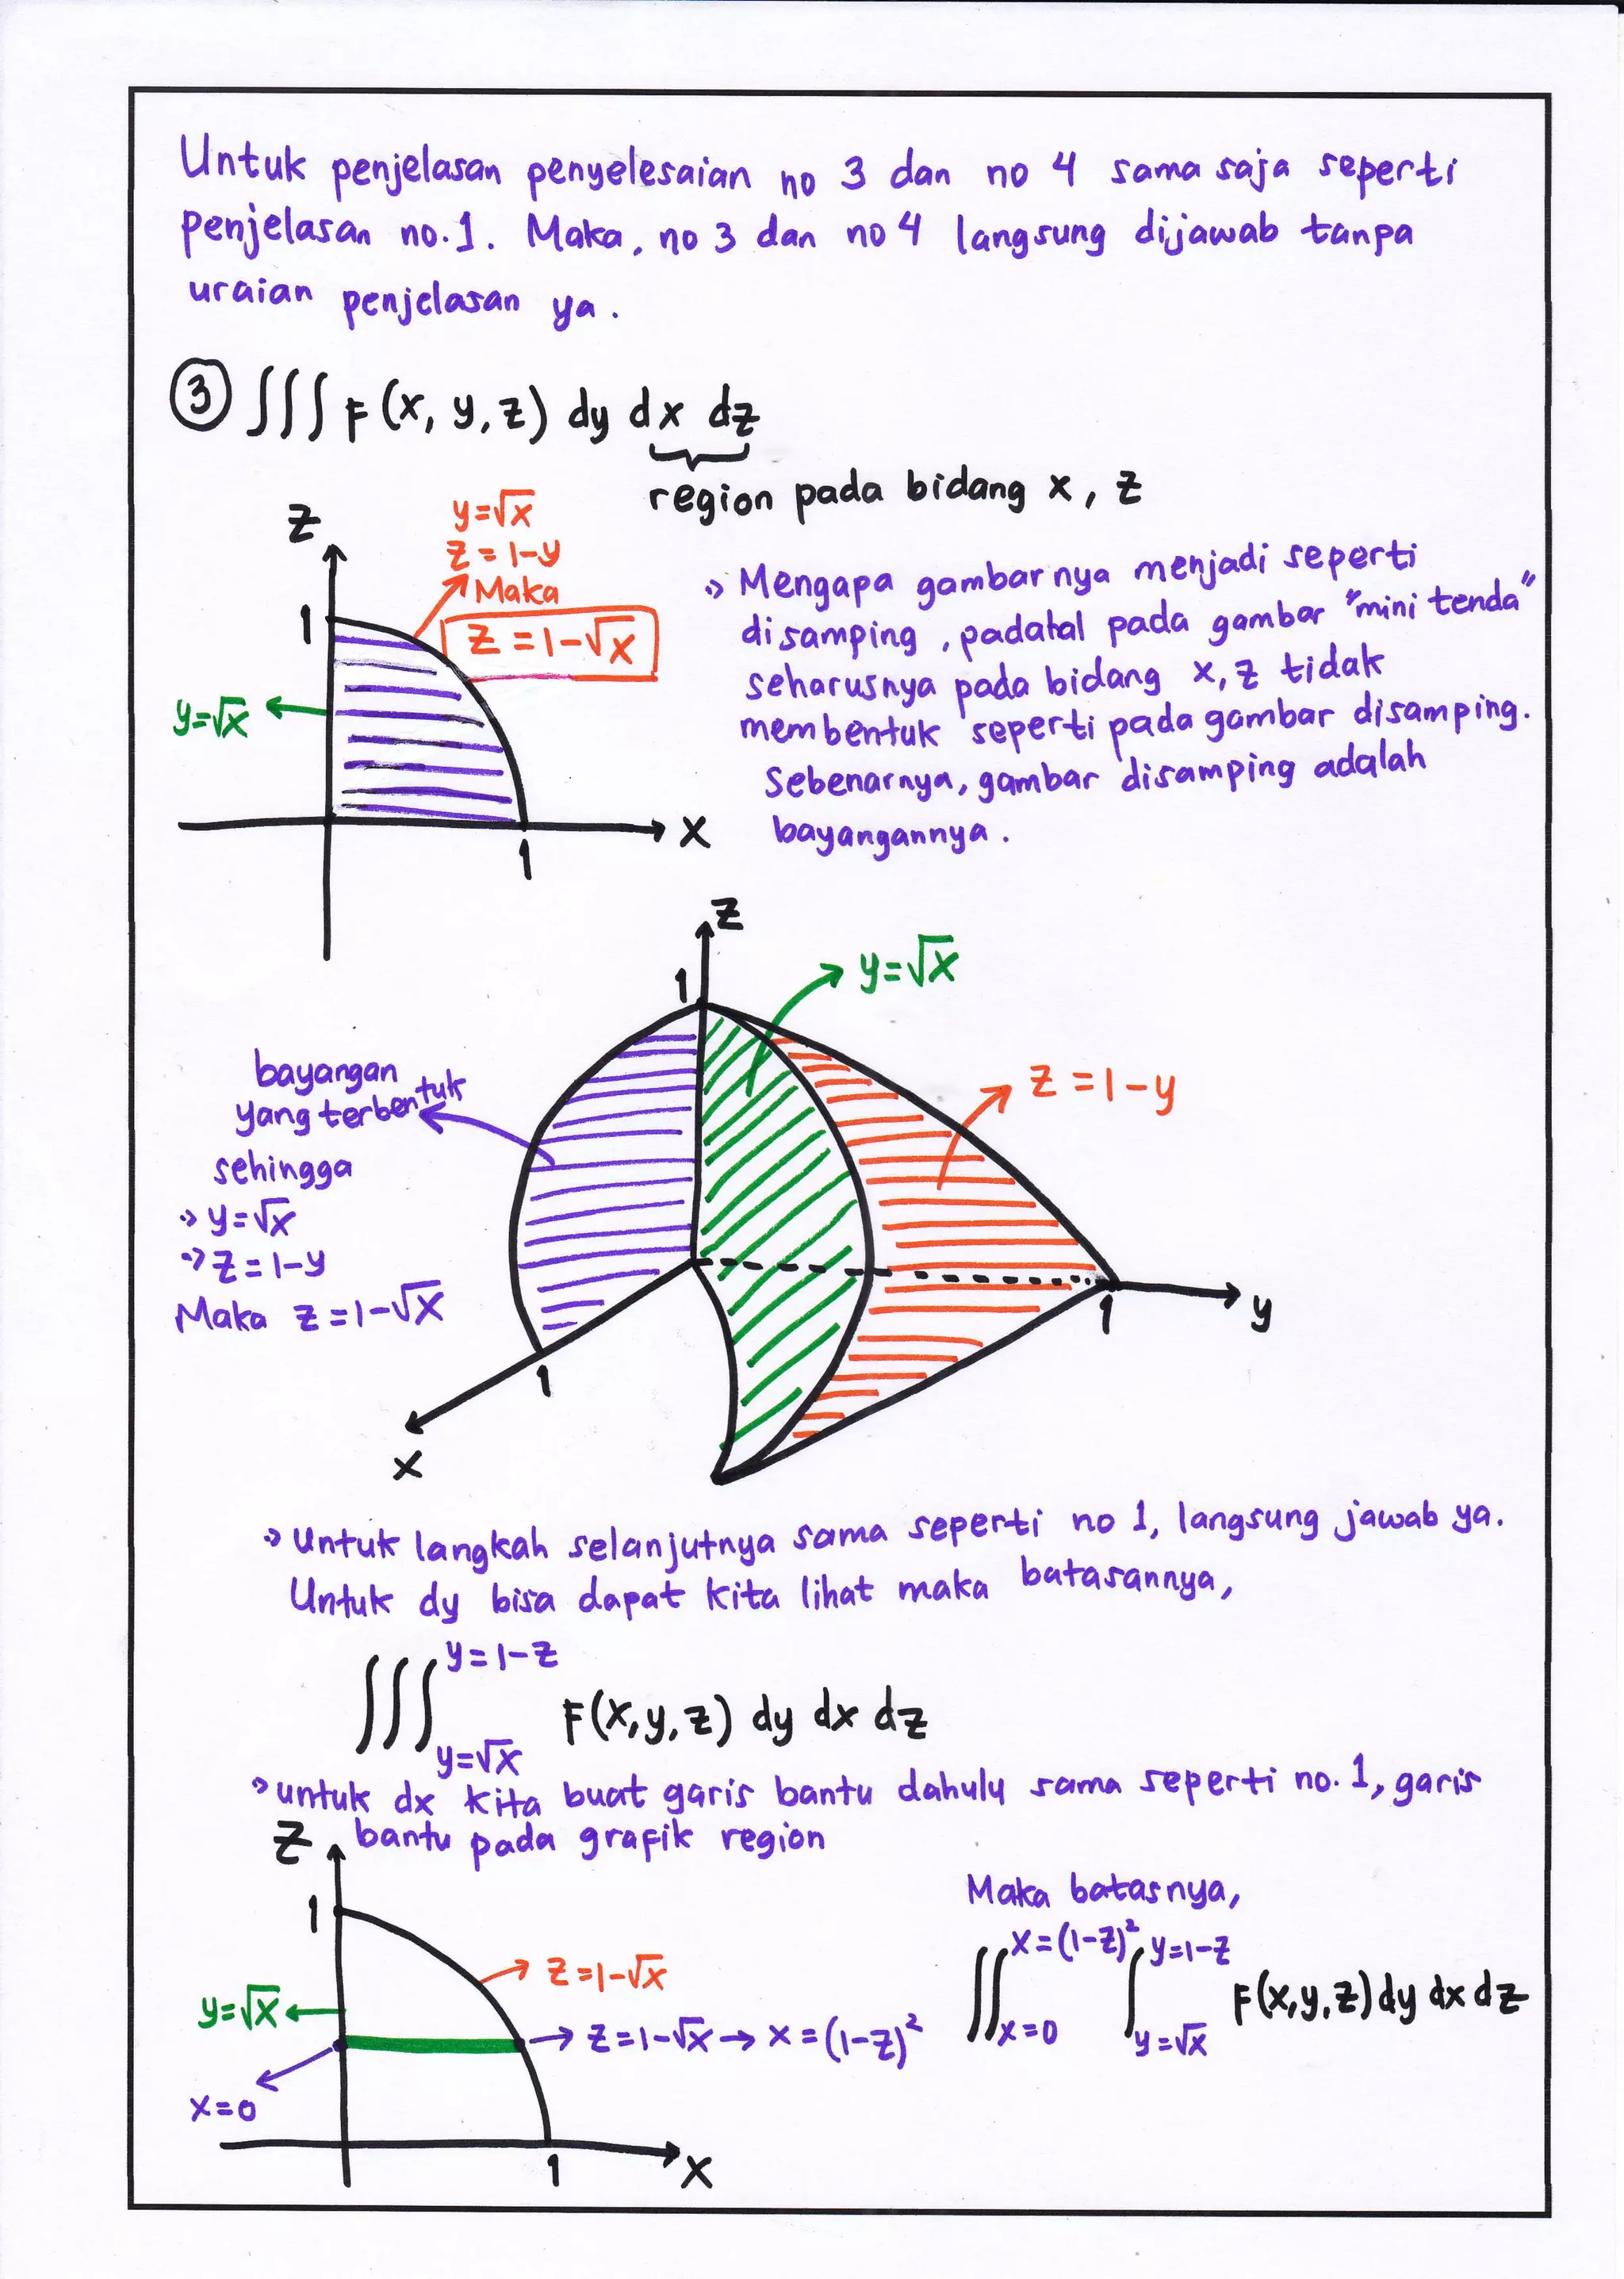 Untuk penjelasan penyelesaian no 3 dan no 4 sama saja seperti
penjelasan no.1. Maka, no 3 dan no 4 langsung dijawab tanpa
uraian penjelasan ya.
③ ∫∫∫ F(x, y, z) dy dx dz
region pada bidang x, z
Z
y=√x
z = 1-y
Maka
z = 1-√x
1
y=√x
x
1
» Mengapa gambarnya menjadi seperti
disamping, padatal pada gambar "mini tenda"
seharusnya pada bidang x, z tidak
membentuk seperti pada gambar disamping.
Sebenarnya, gambar disamping adalah
bayangannya.
z
1
y=√x
z = 1-y
bayangan
yang terbentuk
sehingga
» y=√x
» z = 1-y
Maka z = 1-√x
1
y
1
x
» Untuk langkah selanjutnya sama seperti no 1, langsung jawab ya.
Untuk dy bisa dapat kita lihat maka batasannya,
y=1-z
∫∫∫ F(x,y,z) dy dx dz
y=√x
» untuk dx kita buat garis bantu dahulu sama seperti no. 1, garis
bantu pada grafik region
Z
1
z=1-√x
y=√x
→ z=1-√x → x=(1-z)²
x=0
1
x
Maka batasnya,
x=(1-z)² y=1-z
∫∫ ∫ F(x,y,z) dy dx dz
x=0 y=√x